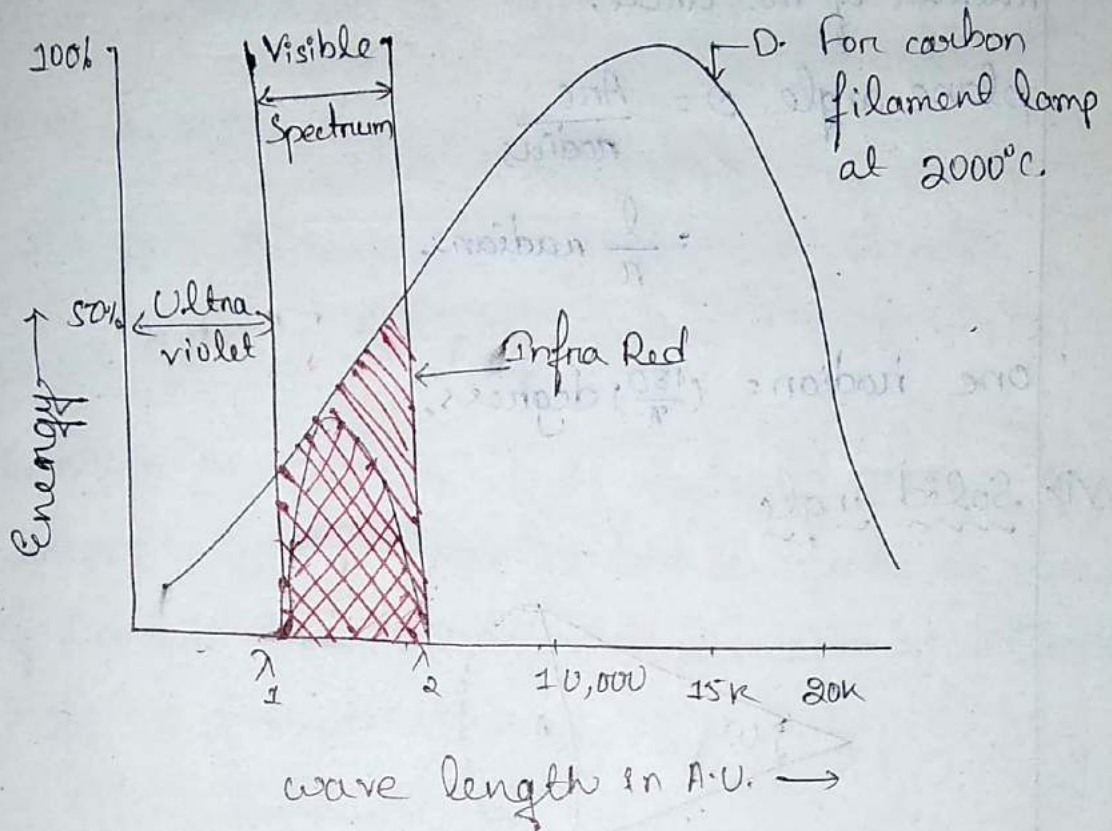 100%
Visible
Spectrum
D. For carbon
filament lamp
at 2000°C.
50%
Ultra
violet
Infra Red
Energy
λ1
λ2
10,000
15K
20K
wave length in A.U.